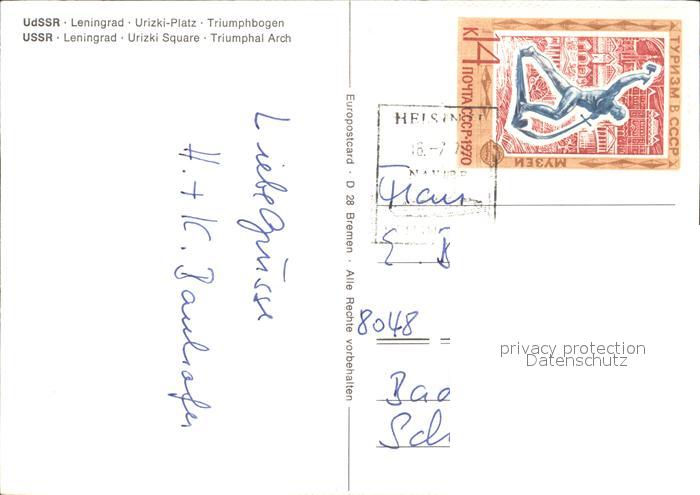 UdSSR · Leningrad · Urizki-Platz · Triumphbogen
USSR · Leningrad · Urizki Square · Triumphal Arch
Liebe Grüsse
H. + K.
Europostcard · D 28 Bremen · Alle Rechte vorbehalten
К 14
ПОЧТА СССР·1970
ТУРИЗМ В СССР
МУЗЕИ
HELSINKI
NAVIRE
8048
privacy protection
Datenschutz